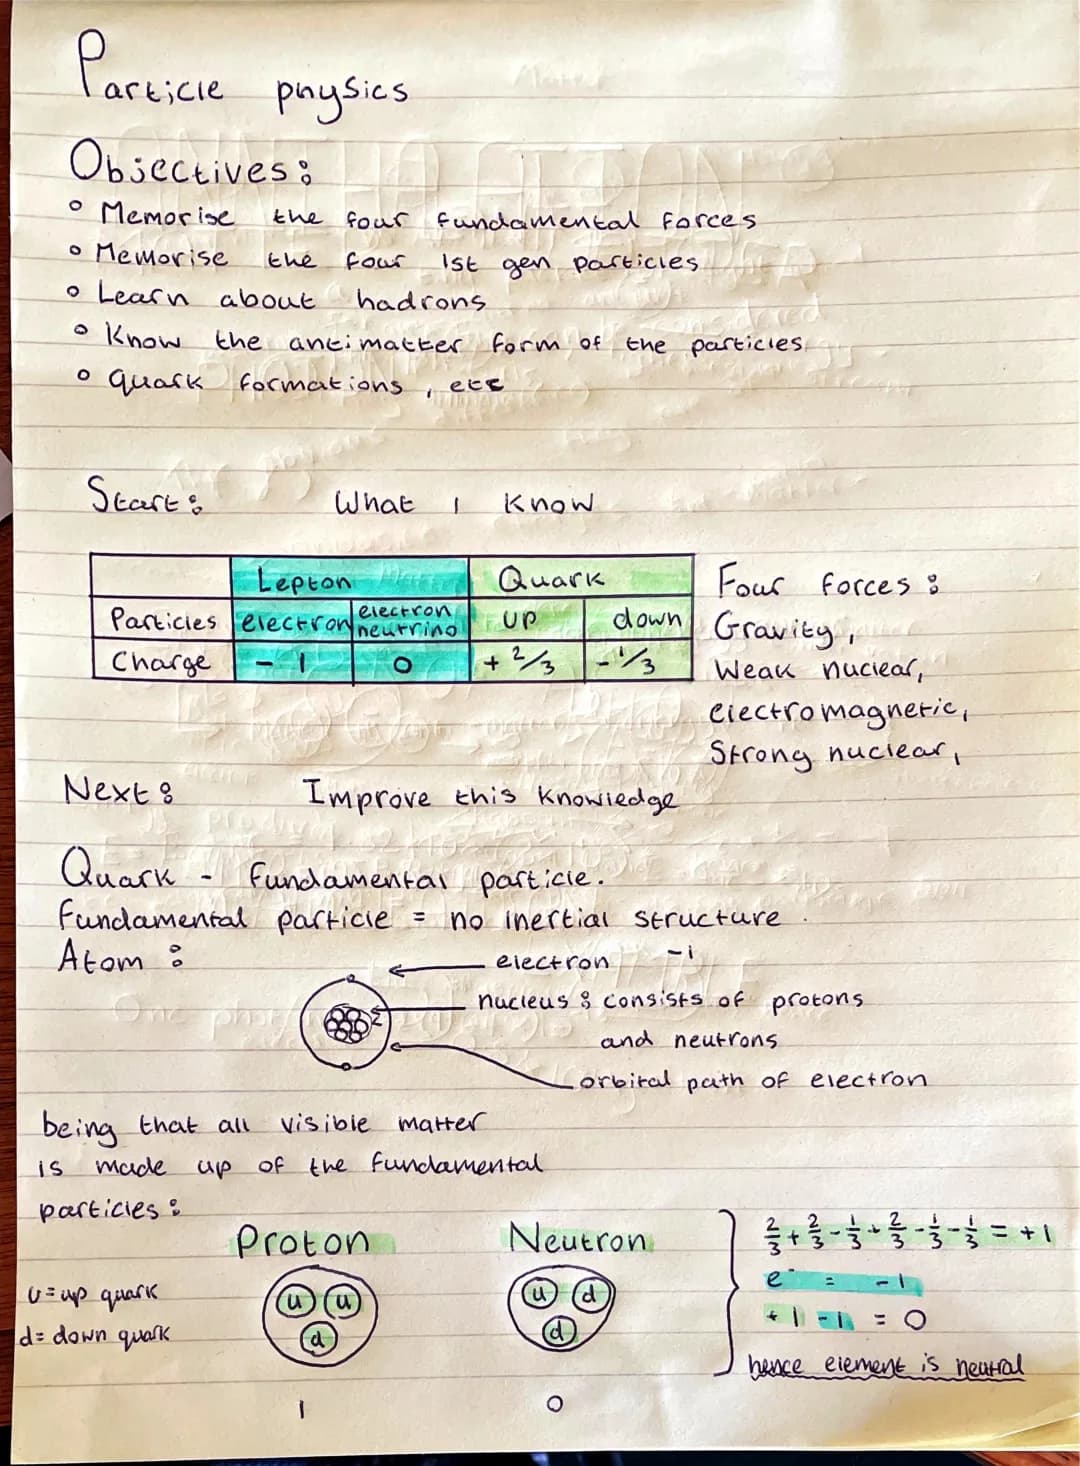 Particle physics
Objectives:
◦ Memorise the four fundamental forces
◦ Memorise the four 1st gen particles
◦ Learn about hadrons
◦ Know the antimatter form of the particles
◦ quark formations, etc
Start: What I know
Lepton Quark
Particles electron electron neutrino up down
Charge -1 0 +2/3 -1/3
Four forces:
Gravity,
Weak nuclear,
electromagnetic,
Strong nuclear,
Next: Improve this knowledge
Quark - fundamental particle.
fundamental particle = no inertial structure.
Atom:
electron -1
nucleus: consists of protons
and neutrons
orbital path of electron
being that all visible matter
is made up of the fundamental
particles:
Proton Neutron
u = up quark
d = down quark
u u
d
u d
d
1 0
2/3 + 2/3 - 1/3 + 2/3 - 1/3 - 1/3 = +1
e⁻ = -1
+1 -1 = 0
hence element is neutral